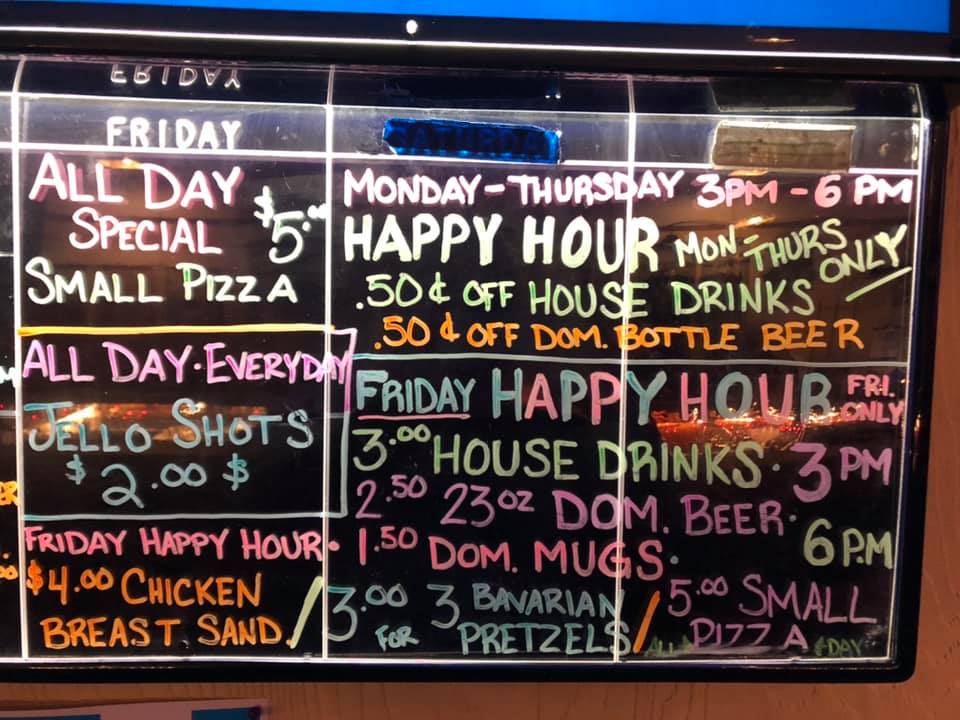 FRIDAY
FRIDAY
SATURDAY
ALL DAY
SPECIAL
$5.00
SMALL PIZZA
ALL DAY·EVERYDAY
JELLO SHOTS
$ 2.00 $
FRIDAY HAPPY HOUR·
$4.00 CHICKEN
BREAST SAND. /
MONDAY-THURSDAY 3PM-6 PM
HAPPY HOUR MON-THURS ONLY
.50¢ OFF HOUSE DRINKS
.50¢ OFF DOM. BOTTLE BEER
FRIDAY HAPPY HOUR FRI. ONLY
3.00 HOUSE DRINKS· 3PM
2.50 23oz DOM. BEER·
1.50 DOM. MUGS· 6 P.M
3.00 FOR 3 BAVARIAN PRETZELS /
5.00 SMALL
PIZZA
ALL DAY